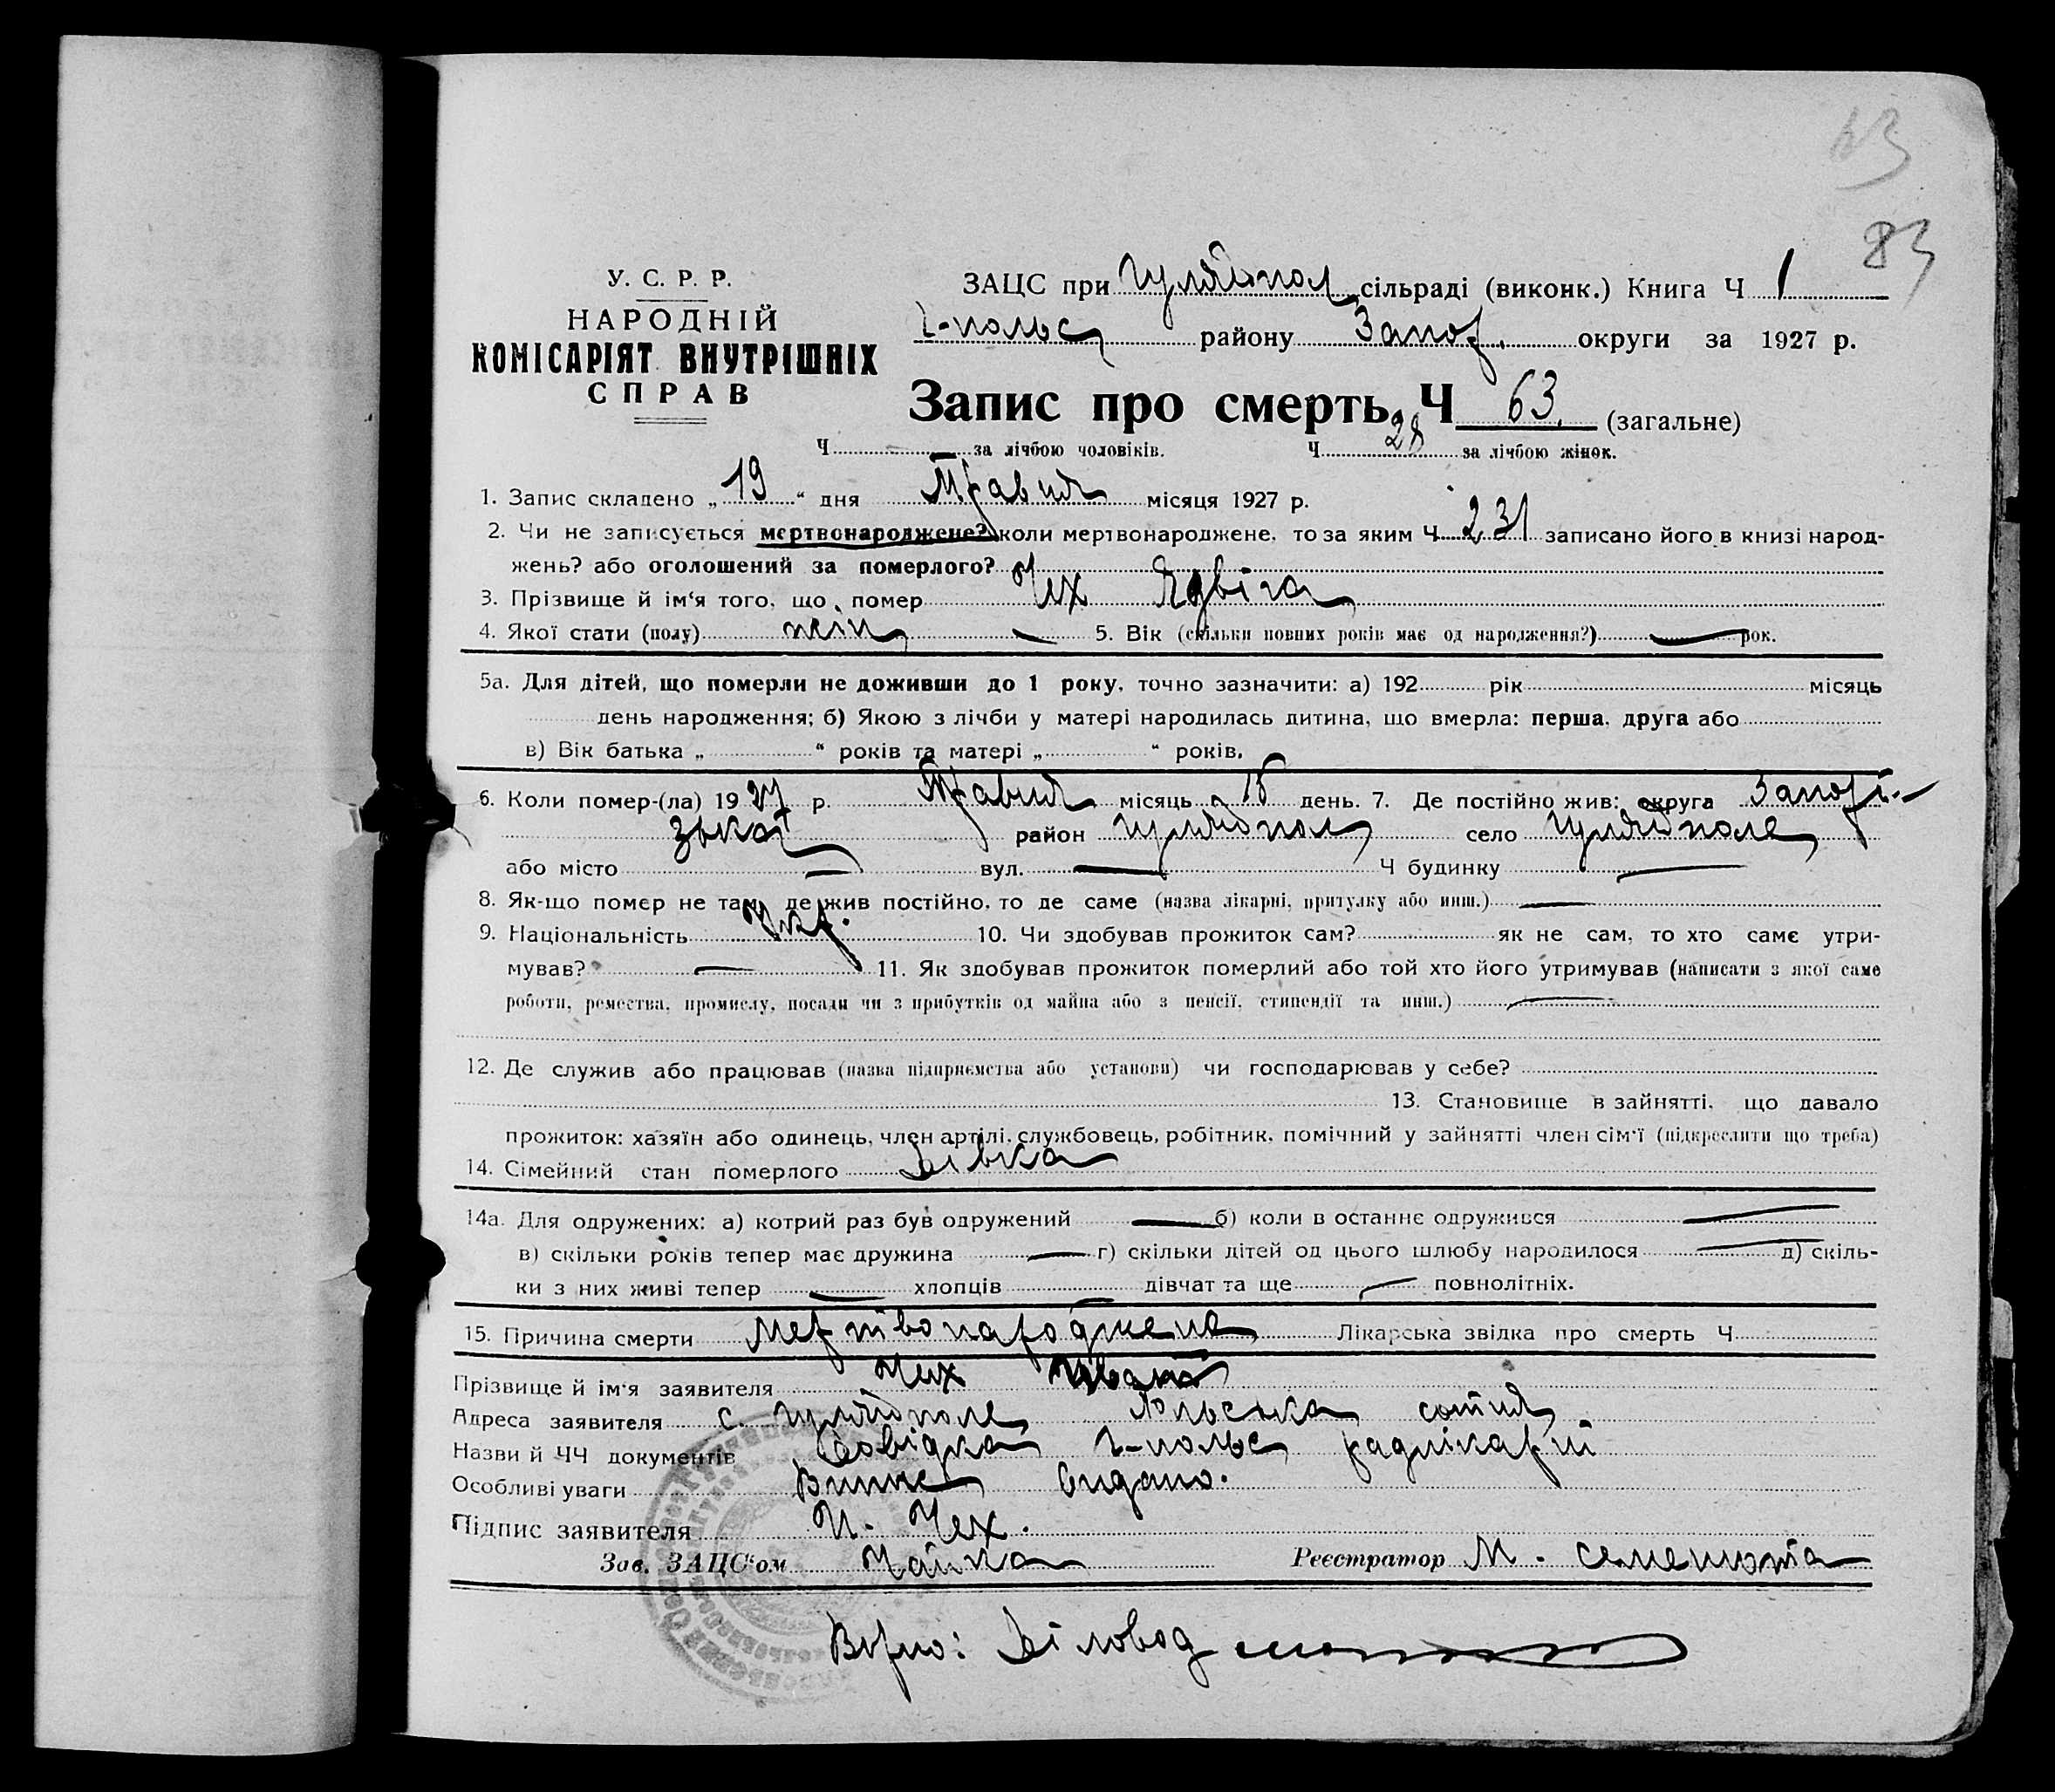 83
У. С. Р. Р.
НАРОДНІЙ
КОМІСАРІЯТ ВНУТРІШНІХ
СПРАВ
ЗАЦС при Гуляйпол сільраді (виконк.) Книга Ч 1
Г-польс району Запор. округи за 1927 р.
Запис про смерть Ч 63. (загальне)
Ч за лічбою чоловіків. Ч 28 за лічбою жінок.
1. Запис складено „19“ дня Травня місяця 1927 р.
2. Чи не записується мертвонароджене? коли мертвонароджене, то за яким Ч 231 записано його в книзі народ-
жень? або оголошений за померлого?
3. Прізвище й ім'я того, що помер Чех Ядвіга
4. Якої стати (полу) жін 5. Вік (скільки повних років має од народження?) — рок.
5а. Для дітей, що померли не доживши до 1 року, точно зазначити: а) 192 рік місяць
день народження; б) Якою з лічби у матері народилась дитина, що вмерла: перша, друга або
в) Вік батька „ “ років та матері „ “ років.
6. Коли помер-(ла) 1927 р. Травня місяць 15 день. 7. Де постійно жив: округа Запорі-
зької район Гуляйпол село Гуляйполе
або місто — вул. — Ч будинку —
8. Як-що помер не там, де жив постійно, то де саме (назва лікарні, притулку або инш.) —
9. Національність Укр. 10. Чи здобував прожиток сам? як не сам, то хто саме утри-
мував? — 11. Як здобував прожиток померлий або той хто його утримував (написати з якої саме
роботи, ремества, промислу, посади чи з прибутків од майна або з пенсії, стипендії та инш.) —
12. Де служив або працював (назва підприємства або установи) чи господарював у себе?
13. Становище в зайнятті, що давало
прожиток: хазяїн або одинець, член артілі, службовець, робітник, помічний у зайнятті член сім'ї (підкреслити що треба)
14. Сімейний стан померлого Дівка
14а. Для одружених: а) котрий раз був одружений — б) коли в останнє одружився —
в) скільки років тепер має дружина — г) скільки дітей од цього шлюбу народилося — д) скіль-
ки з них живі тепер — хлопців — дівчат та ще — повнолітніх.
15. Причина смерти Мертвонароджена Лікарська звідка про смерть Ч
Прізвище й ім'я заявителя Чех Іван
Адреса заявителя с. Гуляйполе Польська сотня
Назви й ЧЧ документів Довідка Г-польс радлікарні
Особливі уваги Витяг видано.
Підпис заявителя И. Чех.
Зав. ЗАЦС'ом Чайка Реєстратор М. Семенюта
Вірно: Діловод